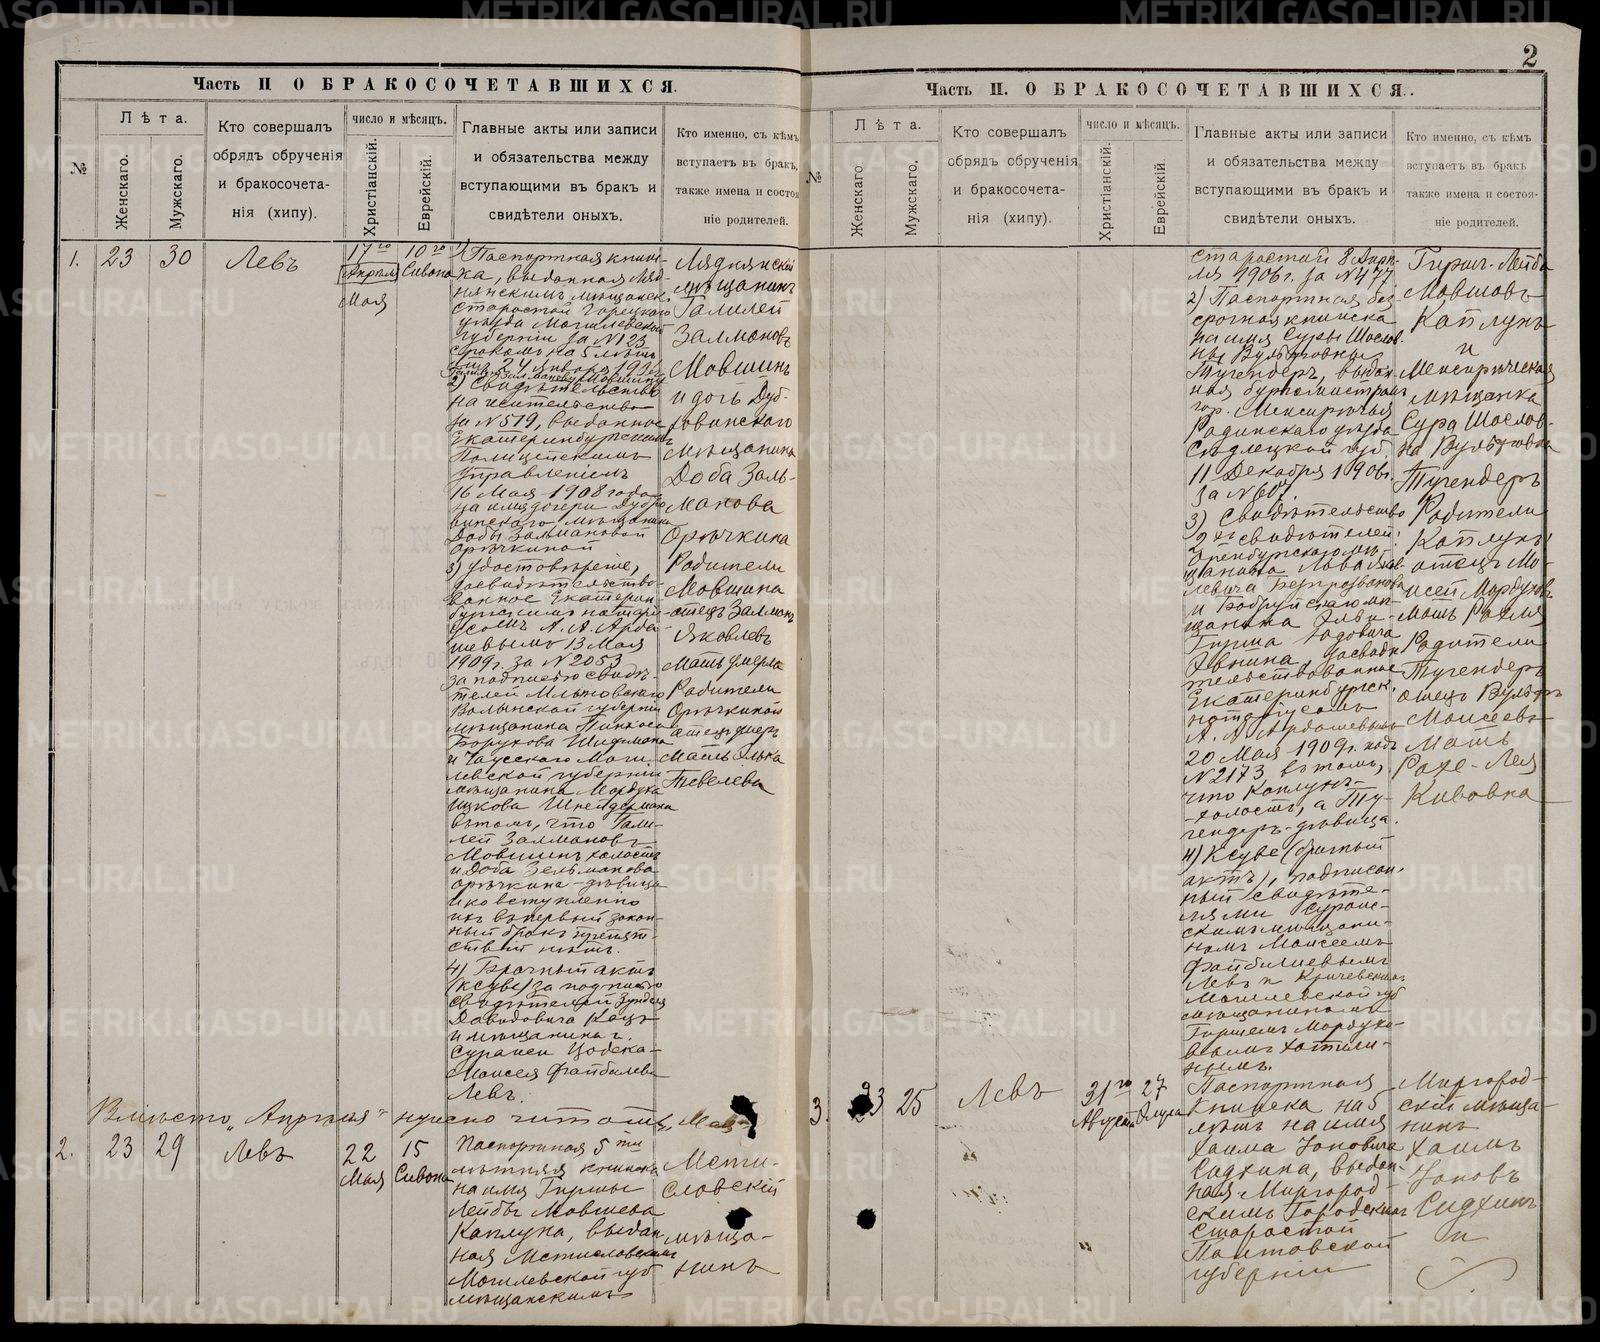 2
Часть II О БРАКОСОЧЕТАВШИХСЯ.
№
Лѣта.
Женскаго.
Мужскаго.
Кто совершалъ
обрядъ обрученія
и бракосочета-
нія (хипу).
число и мѣсяцъ.
Христіанскій.
Еврейскій.
Главные акты или записи
и обязательства между
вступающими въ бракъ и
свидѣтели оныхъ.
Кто именно, съ кѣмъ
вступаетъ въ бракъ,
также имена и состоя
ніе родителей.
1. 23 30 Левъ
17го
Апрѣля
Мая
10го
Сивона
1) Паспортная книж-
ка, выданная Ляд-
нянскимъ мѣщанск.
старостой Горецкаго
уѣзда Могилевской
губерніи за №123
срокомъ на 5 лѣтъ
24 января 190
2) Свидѣтельство
на жительство
за №519, выданное
Екатеринбургскимъ
Полицейскимъ
Управленіемъ
16 Мая 1908 года
на имя дочери Дубро
винскаго мѣщанина
Добы Зальмановой
Орѣчкиной
3) удостовѣреніе,
засвидѣтельство-
ванное Екатерин-
бургскимъ нотарі-
усомъ А. А. Арда-
шевымъ 13 Мая
1909г. за №2053
за подписью свидѣ-
телей
Волынской губерніи
мѣщанина Пинхоса
Борухова Шифмана
и Чаусскаго Моги-
левской губерніи
мѣщанина Мордуха
Ицкова Шнейдермана
въ томъ, что Гали-
лей Залмановъ
Мовшинъ холостъ
и Доба Зельманова
Орѣчкина-дѣвица
и ко вступленію
ихъ въ первый закон-
ный бракъ препят-
ствій нѣтъ.
4) Брачный актъ
(ксубе) за подписью
свидѣтелей
Давидовича Кацъ
и мѣщанина г.
Суража
Моисея Файбилева
Левъ.
Ляднянскій
мѣщанинъ
Галилей
Залмановъ
Мовшинъ
и дочь Дуб-
ровинскаго
мѣщанина
Доба Заль-
манова
Орѣчкина
Родители
Мовшина
отецъ Залманъ
Яковлевъ
Мать умерла
Родители
Орѣчкиной
отецъ умеръ
Мать Элька
Тевелева
Вмѣсто „Апрѣля" нужно читать „Мая"
2. 23 29 Левъ
22
Мая
15
Сивона
Паспортная 5ти
лѣтняя книжка
на имя Гирши
Лейбы Мовшева
Каплуна, выдан
ная Мстиславскимъ
Могилевской губ
мѣщанскимъ
Мсти-
славскій
мѣща-
нинъ
Часть II. О БРАКОСОЧЕТАВШИХСЯ.
№
Лѣта.
Женскаго
Мужскаго.
Кто совершалъ
обрядъ обрученія
и бракосочета-
нія (хипу).
число и мѣсяцъ.
Христіанскій.
Еврейскій.
Главные акты или записи
и обязательства между
вступающими въ бракъ и
свидѣтели оныхъ.
Кто именно, съ кѣмъ
вступаетъ въ бракъ
также имена и состоя-
ніе родителей.
старостой 8 Апрѣ-
ля 1906г. за №477
2) Паспортная без-
срочная книжка
на имя Суры Шослов-
ны Вульфовны
Тугендеръ, выдан-
ная бургомистромъ
гор. Менсирѣчья
Радинскаго уѣзда
Сѣдлецкой губ.
11 Декабря 1906г.
за №607.
3) Свидѣтельство
2хъ свидѣтелей:
Оренбургскаго мѣ-
щанина Лова
левича Безпрозванова
и Бобруйскаго мѣ-
щанина
Гирша Юдовича
Явнина засвидѣ-
тельствованное
Екатеринбургск.
нотаріусомъ
А. А. Ардашевымъ
20 Мая 1909г. подъ
№2173 въ томъ,
что Каплунъ-
-холостъ, а Ту-
гендеръ-дѣвица.
4) Ксубе (брачный
актъ), подписан-
ный свидѣте-
лями Сураж-
скимъ мѣщани-
номъ Моисеемъ
Файбилевымъ
Левъ и Кричевскимъ
Могилевской губ
мѣщаниномъ
Гиршемъ Мордухо-
вымъ Хотили-
нымъ.
Гиршъ-Лейба
Мовшовъ
Каплунъ
и
Менсирѣческая
мѣщанка
Сура Шослов-
на Вульфовна
Тугендеръ
Родители
Каплунъ:
отецъ Мо-
исей Мордуховъ
мать Рахля
Родители
Тугендеръ
отецъ Вульфъ
Моисеевъ
мать
Рохе-Лея
Кивовна
3. 23 25 Левъ
31го
Августа
27
Элула
Паспортная
книжка на 5
лѣтъ на имя
Хаима Іоновича
Сидхина, выдан-
ная Миргород-
скимъ Городскимъ
Старостой
Полтавской
губерніи
Миргород-
скій мѣща-
нинъ
Хаимъ
Іоновъ
Сидхинъ
и
METRIKI.GASO-URAL.RU